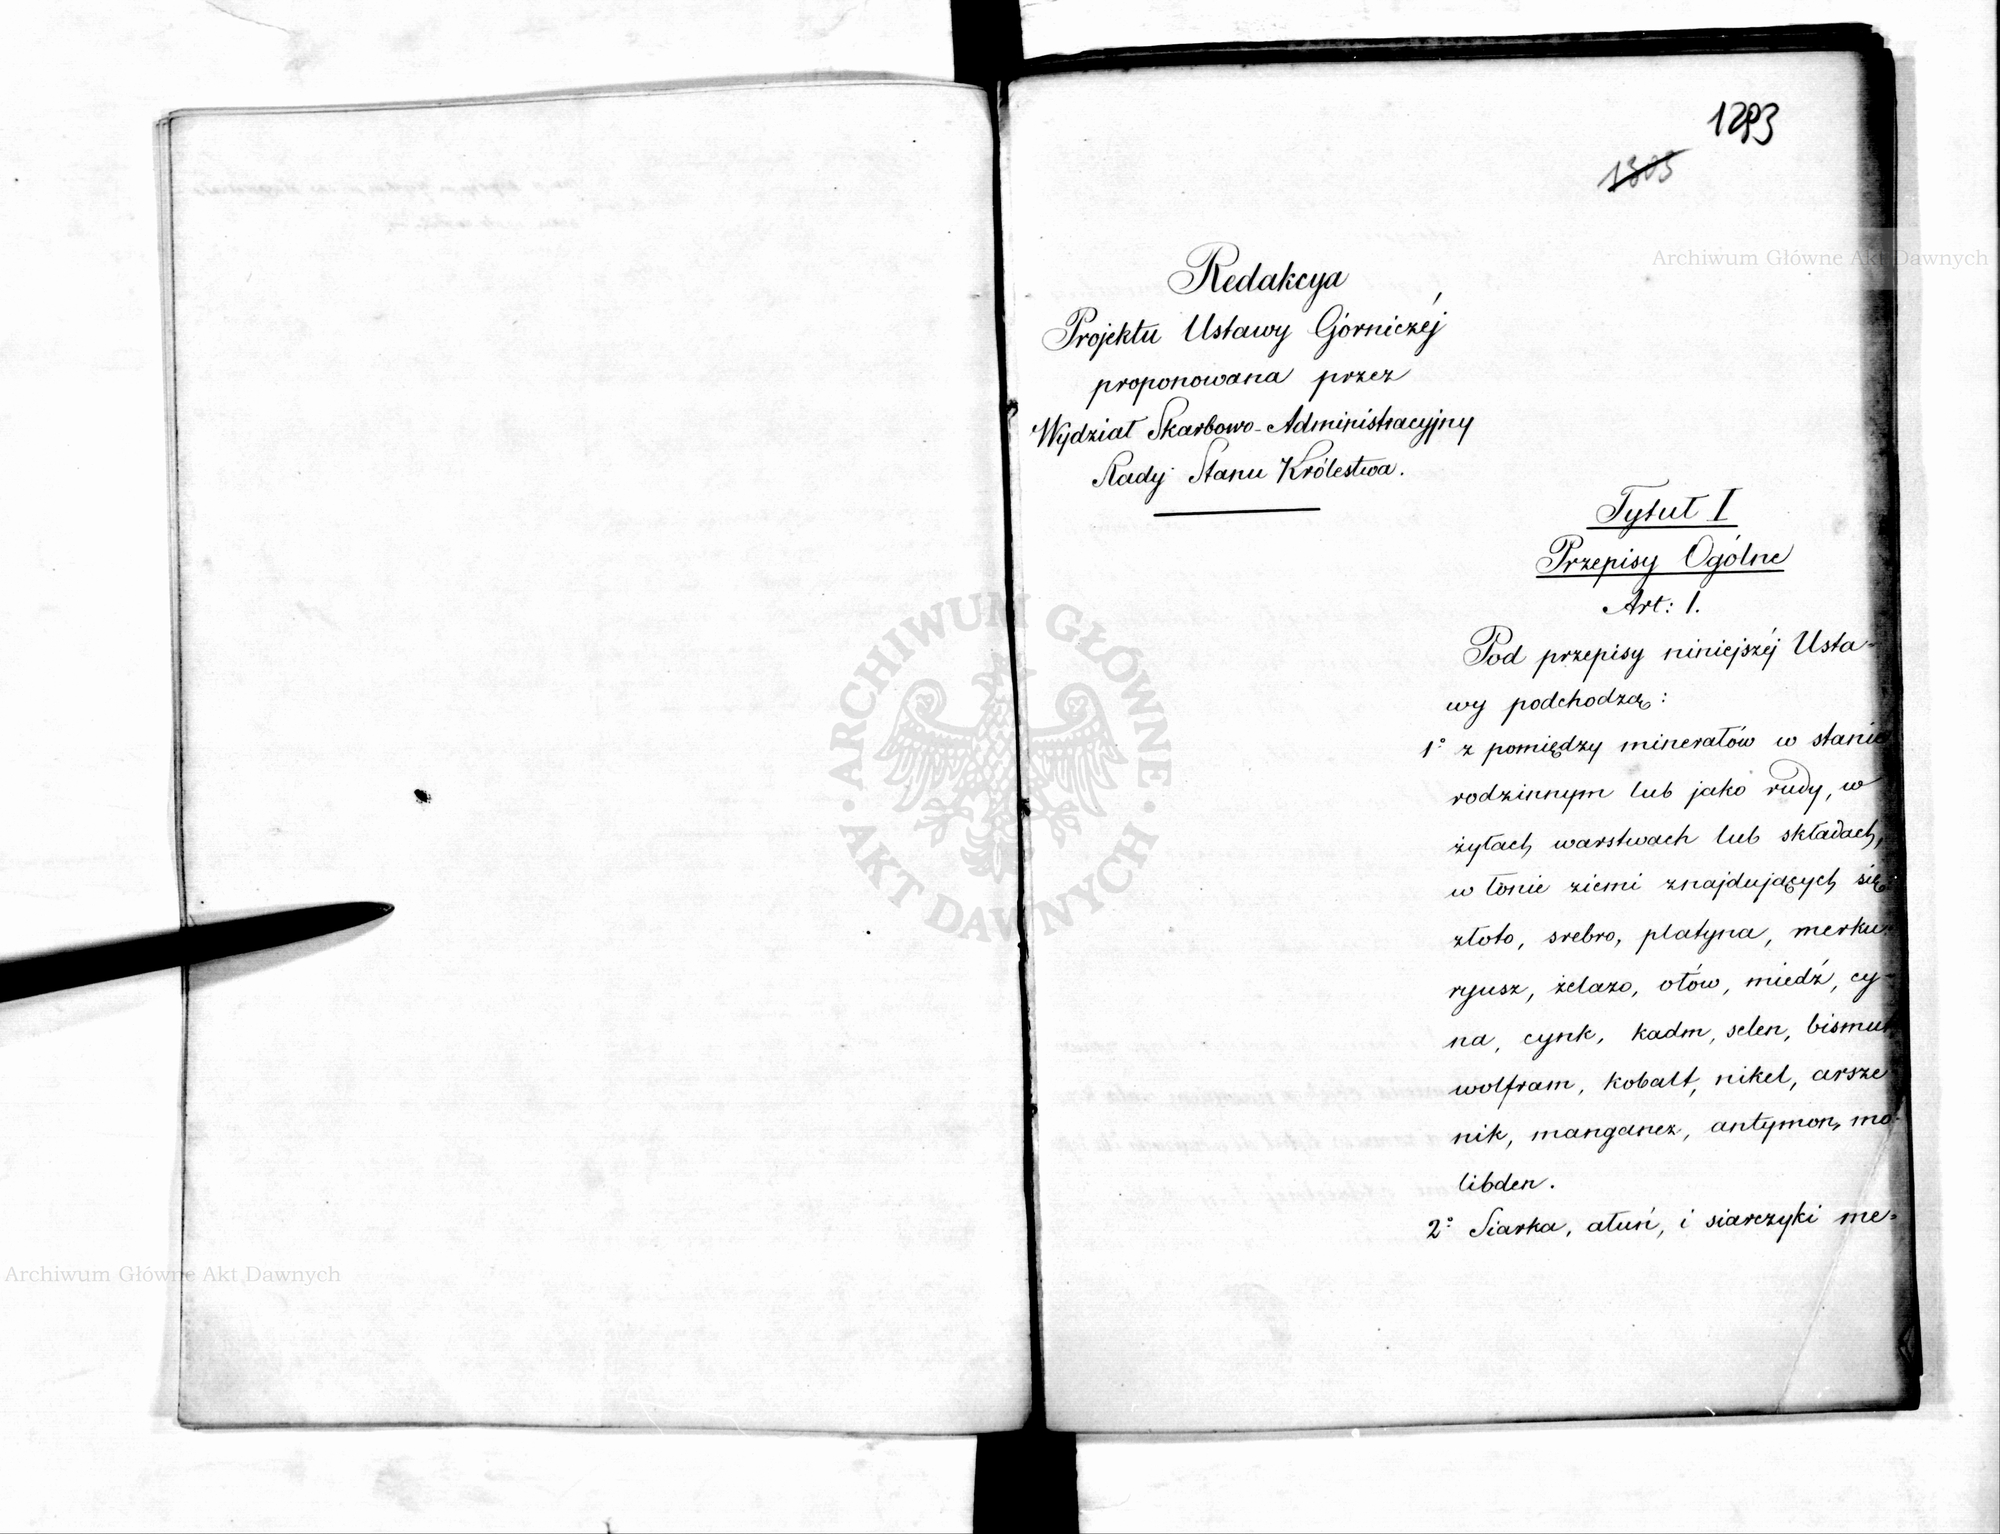 1293
1303
Redakcya
Projektu Ustawy Górniczéj
proponowana przez
Wydział Skarbowo-Administracyjny
Rady Stanu Królestwa.
Tytuł I
Przepisy Ogólne
Art: 1.
Pod przepisy niniejszéj Usta-
wy podchodzą:
1° z pomiędzy minerałów w stanie
rodzinnym lub jako rudy, w
żyłach warstwach lub składach,
w łonie ziemi znajdujących się:
złoto, srebro, platyna, merku-
ryusz, żelazo, ołów, miedź, cy-
na, cynk, kadm, selen, bismut
wolfram, kobalt, nikel, arsze-
nik, manganez, antymon, mo-
libden.
2° Siarka, ałuń, i siarczyki me-
ARCHIWUM GŁÓWNE AKT DAWNYCH
Archiwum Główne Akt Dawnych
Archiwum Główne Akt Dawnych